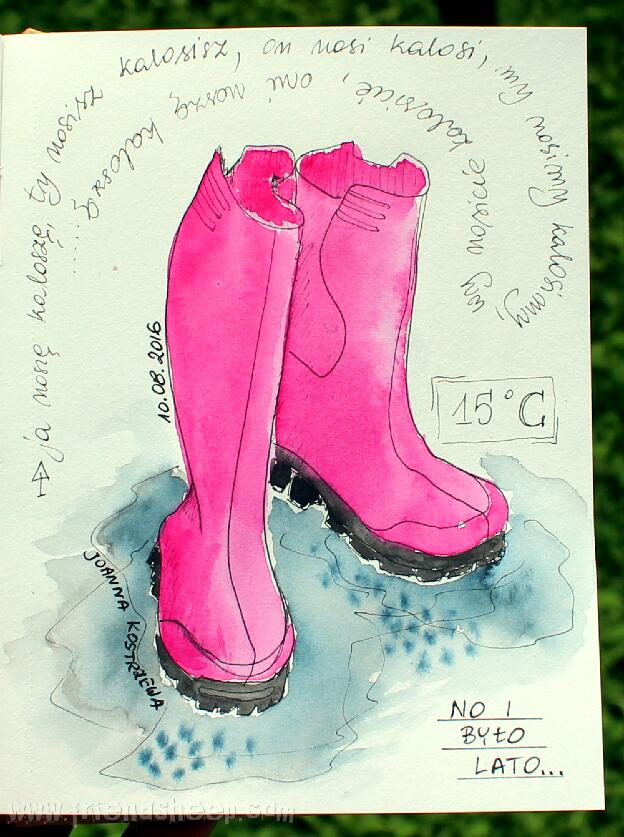 ja noszę kaloszę, ty nosisz kalosisz, on nosi kalosi, my nosimy kalosimy,
wy nosicie kalosicie, oni noszą kaloszą.....
10.08.2016
15°C
JOANNA KOSTRZEWA
NO I
BYŁO
LATO...
www.friendsheep.com